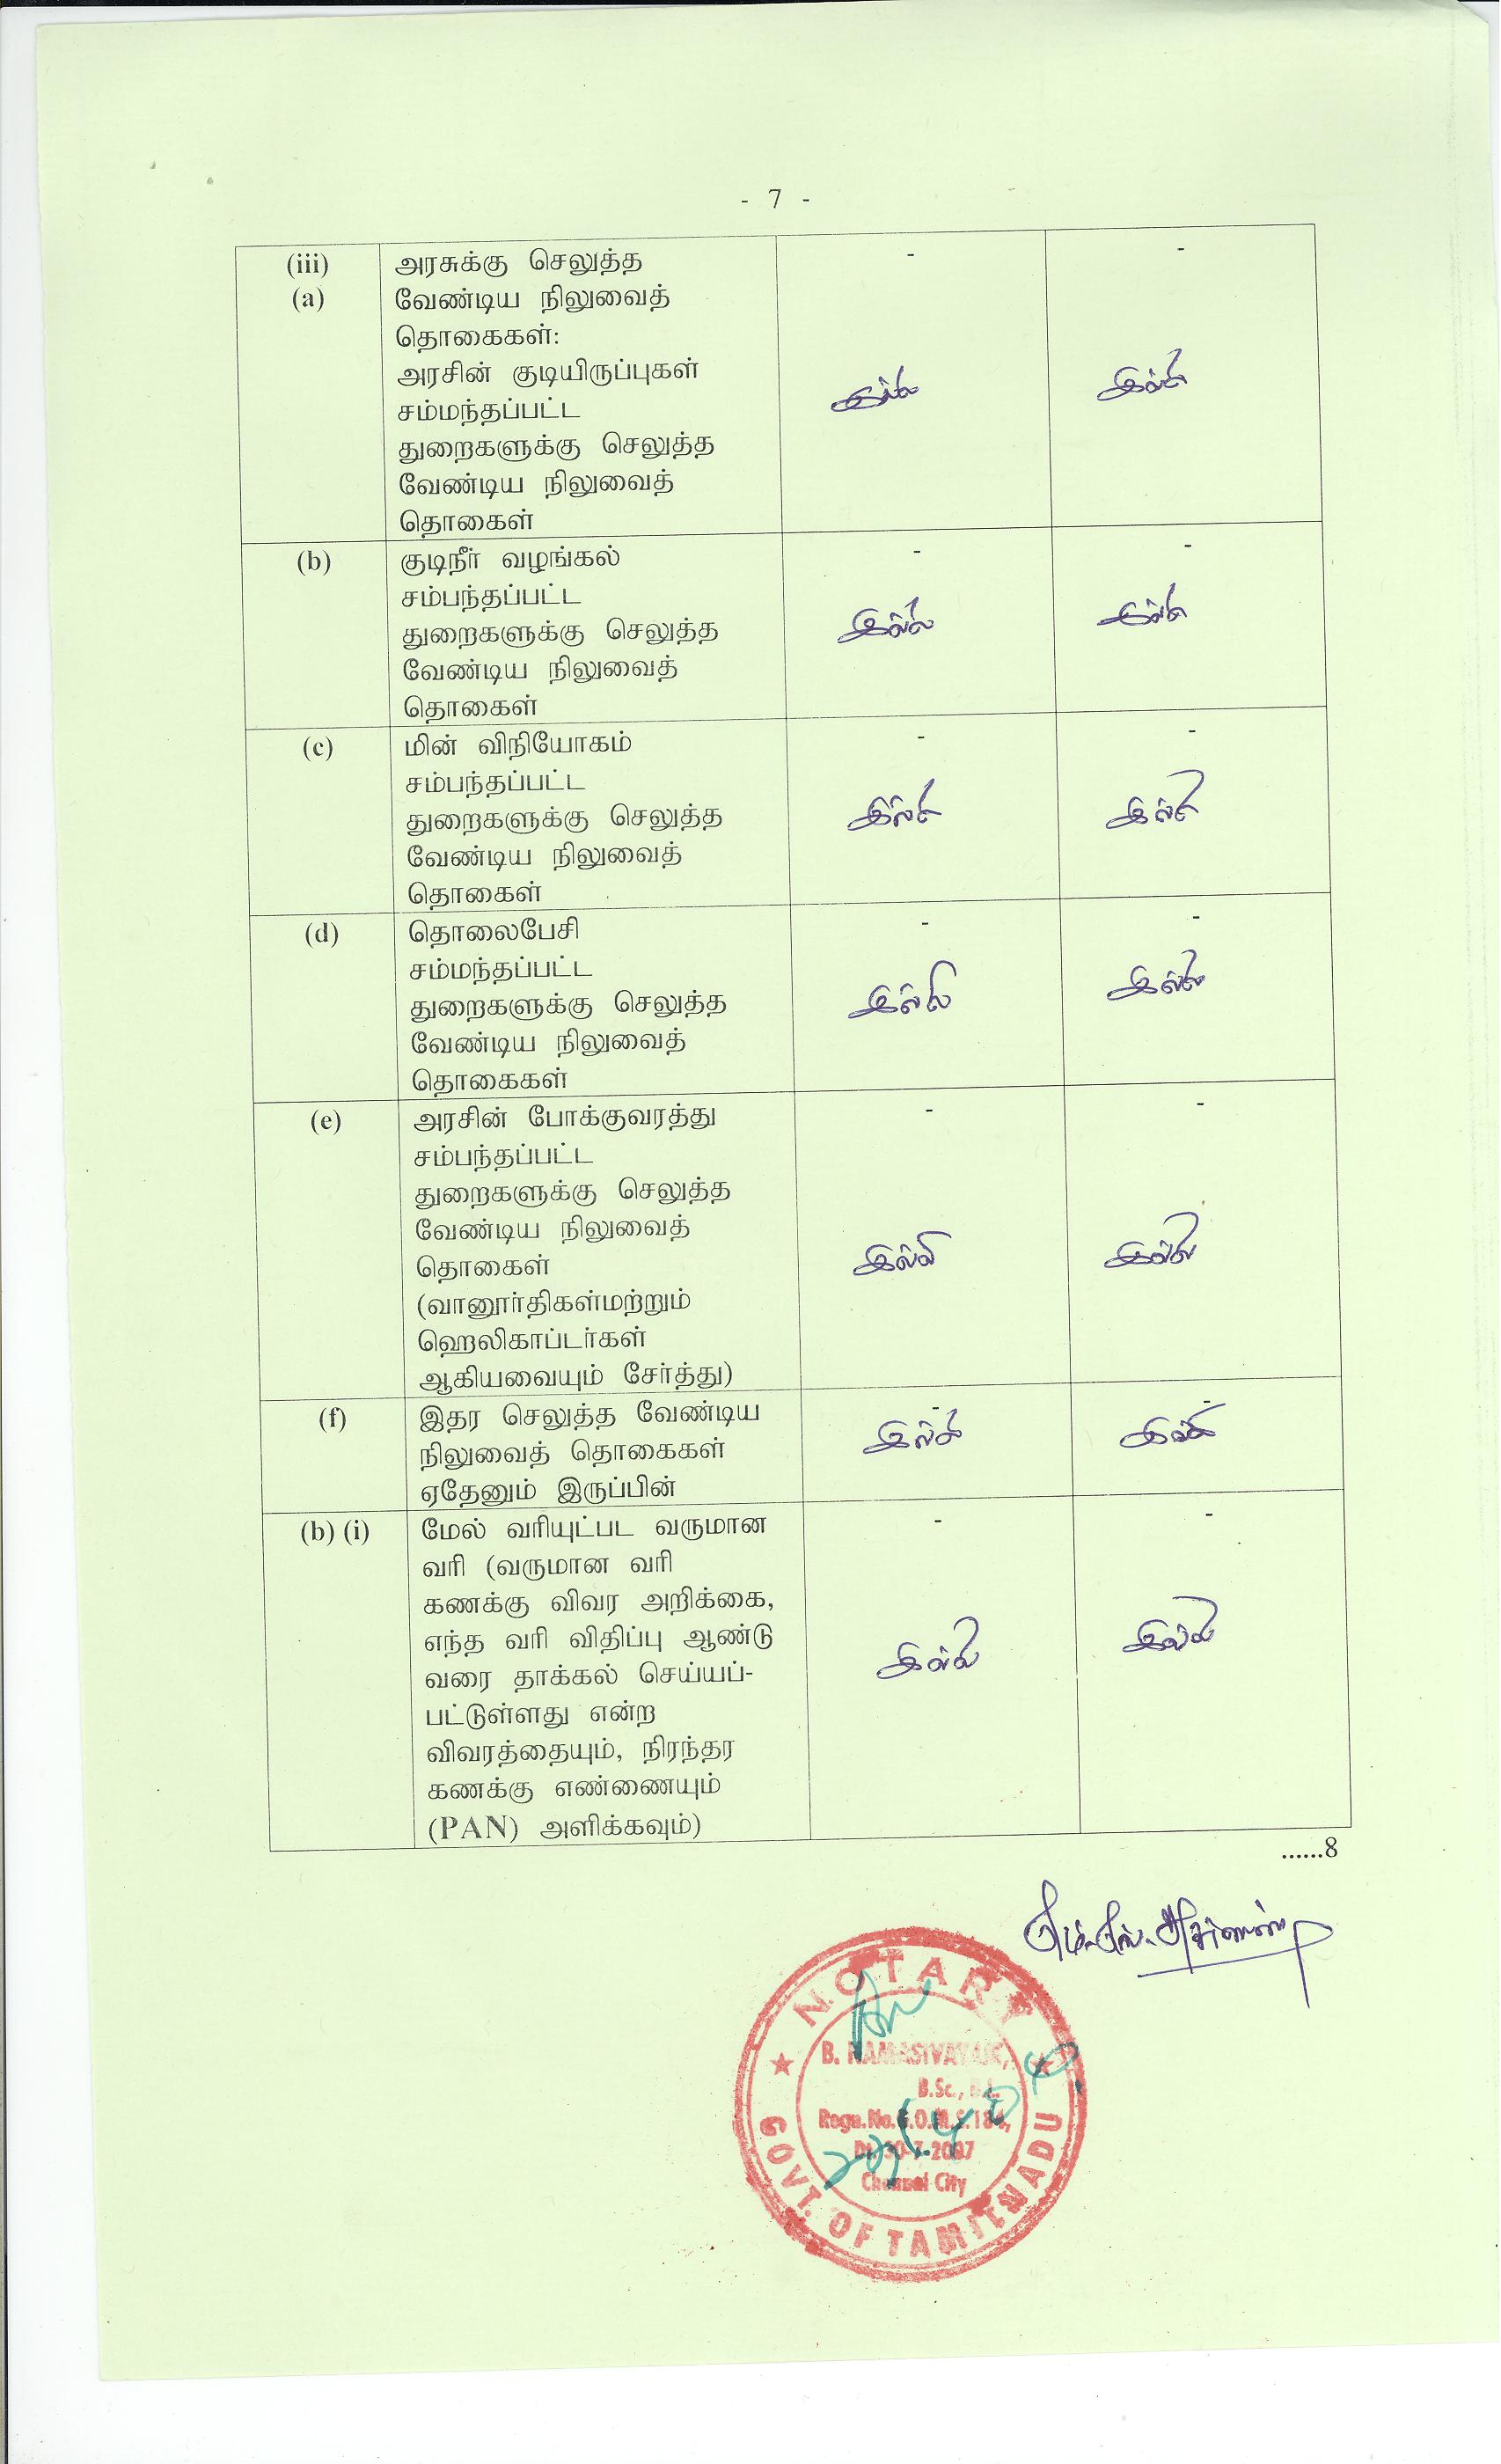 - 7 -
(iii) அரசுக்கு செலுத்த - -
(a) வேண்டிய நிலுவைத்
தொகைகள்:
அரசின் குடியிருப்புகள் இல்லை இல்லை
சம்மந்தப்பட்ட
துறைகளுக்கு செலுத்த
வேண்டிய நிலுவைத்
தொகைள்
(b) குடிநீர் வழங்கல் - -
சம்பந்தப்பட்ட
துறைகளுக்கு செலுத்த இல்லை இல்லை
வேண்டிய நிலுவைத்
தொகைள்
(c) மின் விநியோகம் - -
சம்பந்தப்பட்ட
துறைகளுக்கு செலுத்த இல்லை இல்லை
வேண்டிய நிலுவைத்
தொகைள்
(d) தொலைபேசி - -
சம்மந்தப்பட்ட
துறைகளுக்கு செலுத்த இல்லை இல்லை
வேண்டிய நிலுவைத்
தொகைகள்
(e) அரசின் போக்குவரத்து - -
சம்பந்தப்பட்ட
துறைகளுக்கு செலுத்த
வேண்டிய நிலுவைத்
தொகைள் இல்லை இல்லை
(வானூர்திகள்மற்றும்
ஹெலிகாப்டர்கள்
ஆகியவையும் சேர்த்து)
(f) இதர செலுத்த வேண்டிய - -
நிலுவைத் தொகைகள் இல்லை இல்லை
ஏதேனும் இருப்பின்
(b) (i) மேல் வரியுட்பட வருமான - -
வரி (வருமான வரி
கணக்கு விவர அறிக்கை,
எந்த வரி விதிப்பு ஆண்டு இல்லை இல்லை
வரை தாக்கல் செய்யப்-
பட்டுள்ளது என்ற
விவரத்தையும், நிரந்தர
கணக்கு எண்ணையும்
(PAN) அளிக்கவும்)
......8
NOTARY
B. NAMASIVAYAM,
B.Sc., B.L.
Regn.No.G.O.M.S.184,
Dt.30-7-2007
Chennai City
GOVT. OF TAMILNADU